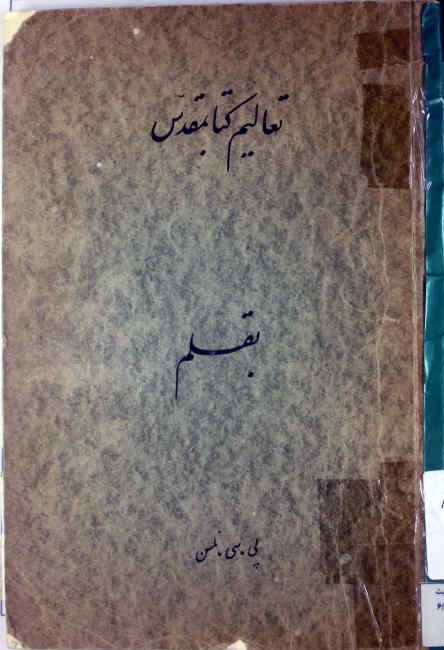 تعالیم کتابمقدّس
بقلم
پی. سی. نلسن